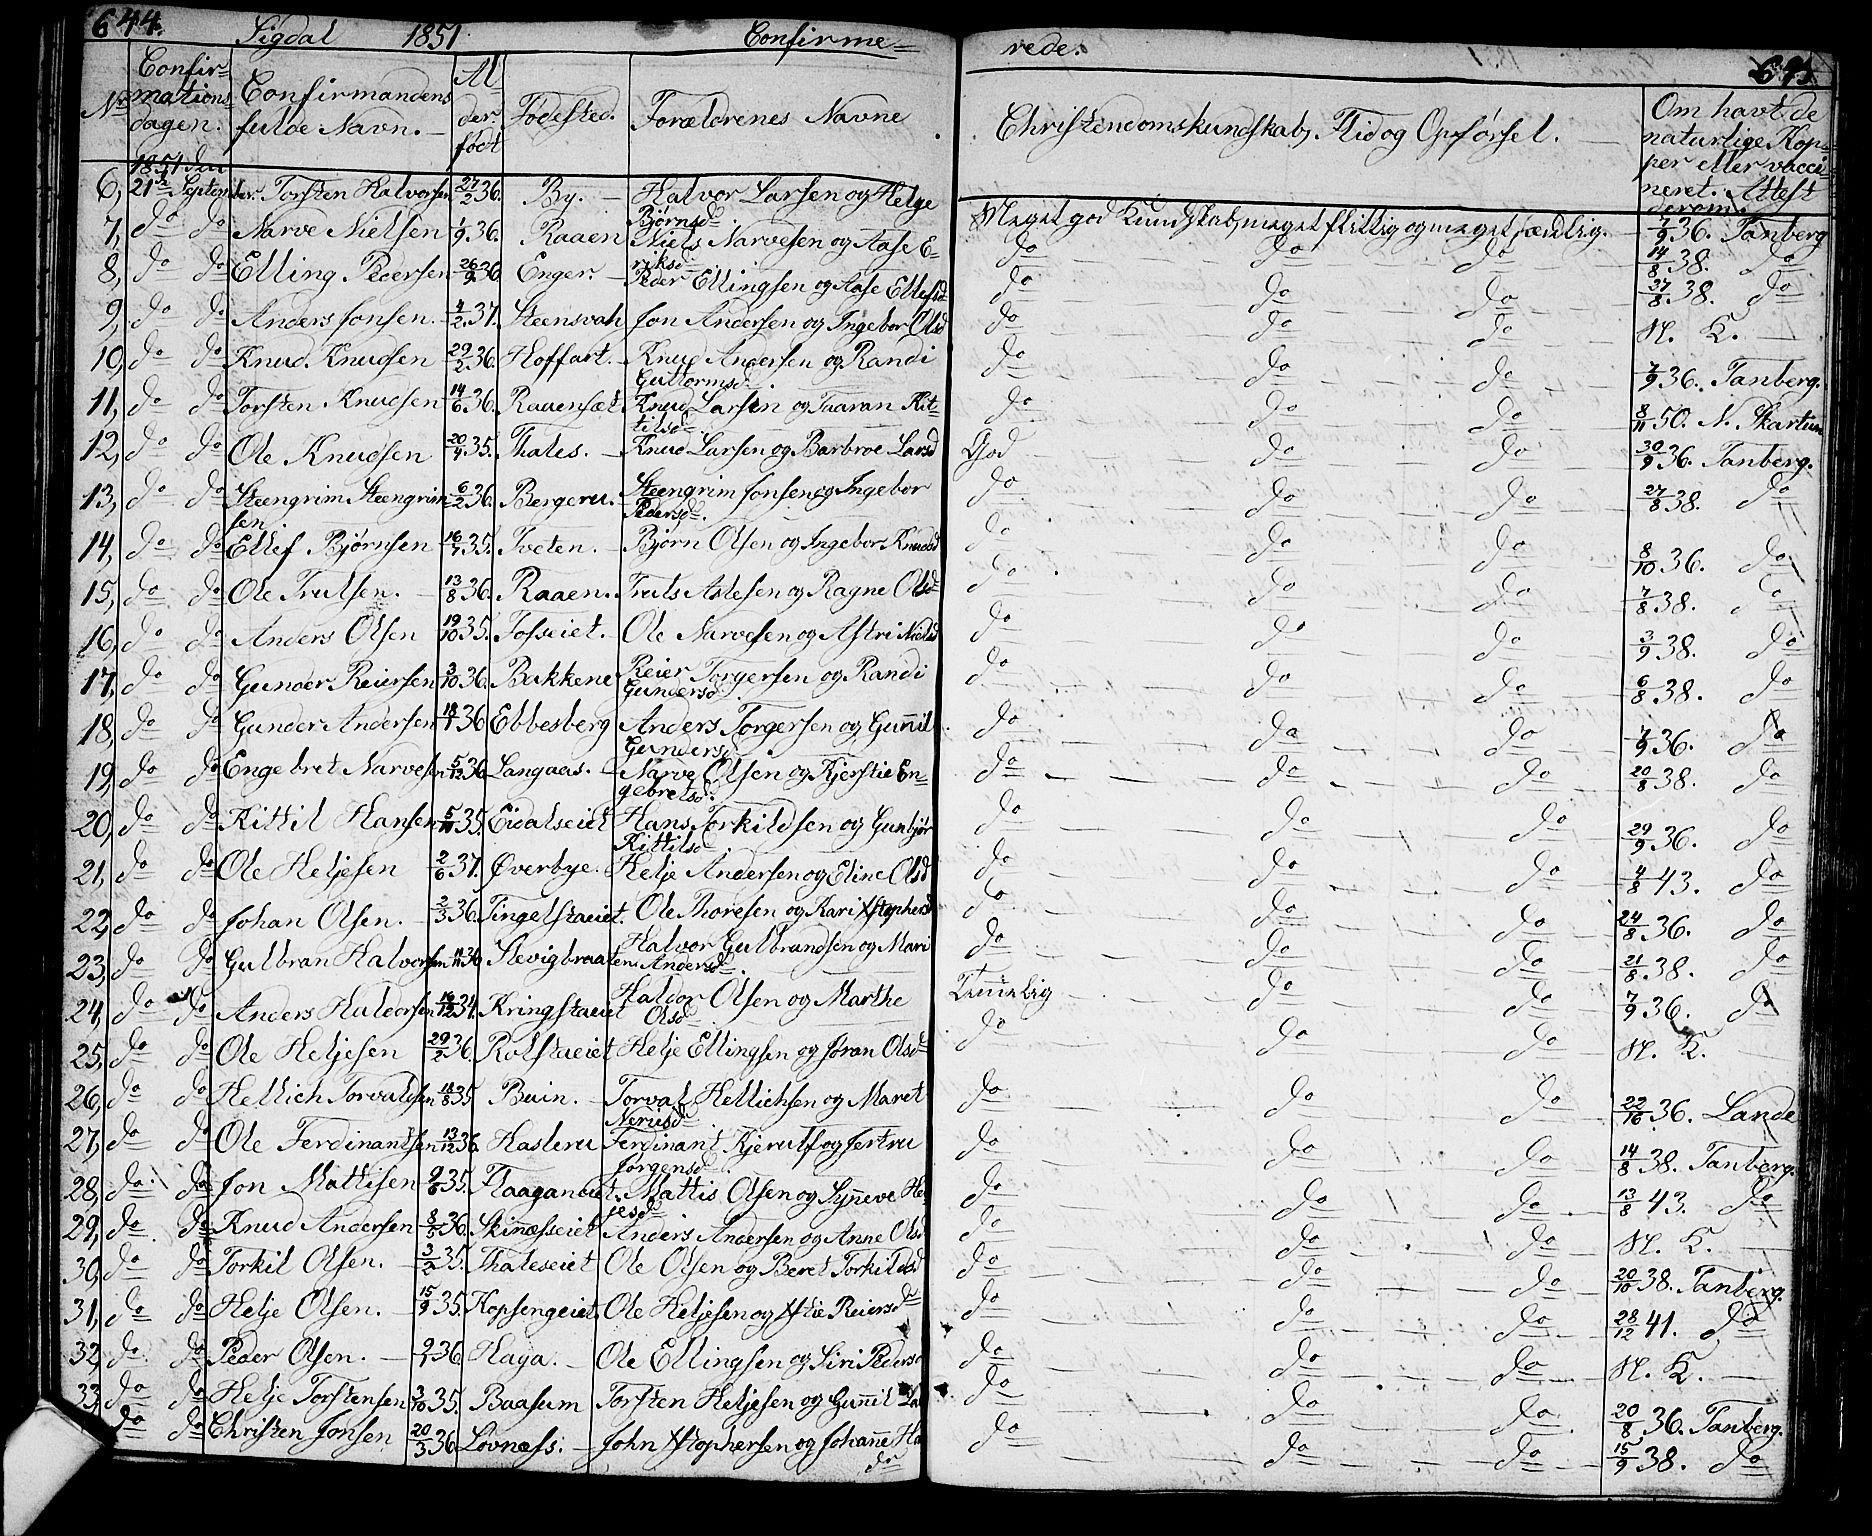 644.
Sigdal 1851. Confirme=
rede.
645
Nr
Confir=
mations=
dagen.
Confirmandens
fulde Navn.
Al
der.
født
Fødested.
Forældrenes Navne
Christendomskundskab, Flid og Opførsel.
Om havt de
naturlige Kop=
per eller vacci=
neret. Attest
derom.
1851 den
6, 21de September. Torsten Halvorsen 27/2 36. By. Halvor Larsen og Helge Meget god Kundskab, meget flittig og meget sædelig. 7/9 36. Tanberg
Björnsd
7, do do Narve Nielsen 1/9 36. Raaen Niels Narvesen og Aase E= do do do 14/8 38. do
riksd
8, do do Elling Pedersen 26/9 36 Enger. Peder Ellingsen og Aase Ellefsd do do do 27/8 38. do
9, do do Anders Jonsen. 4/2 37. Steensvah Jon Andersen og Ingebor Olsd do do do N. K.
10, do do Knud Knudsen 29/2 36. Hoffart. Knud Andersen og Randi do do do 7/9 36. Tanberg.
Guttormsd
11, do do Torsten Knudsen 14/6 36. Rauensæt Knud Larsen og Taaran Kit= do do do 8/11 50. N. Skartum
tilsd
12, do do Ole Knudsen 20/4 35. Thales. Knud Larsen og Barbroe Larsd God do do 30/9 36. Tanberg.
13, do do Steengrim Steengrim 6/2 36. Bergeru. Steengrim Jonsen og Ingebor do do do 27/8 38. do
sen Pedersd
14, do do Ellef Bjørnsen 16/7 35. Tveten. Bjørn Olsen og Ingebor Knudsd do do do 8/10 36. do
15, do do Ole Trulsen. 13/8 36. Raaen. Truls Aslesen og Ragne Olsd do do do 7/8 38. do
16, do do Anders Olsen 19/10 35. Tofseiet. Ole Narvesen og Astri Nielsd do do do 3/9 38. do
17, do do Gunder Reiersen 3/10 36. Bukkene Reier Torgersen og Randi do do do 6/8 38. do
Gundersd
18, do do Gunder Andersen 36 Ebbesberg Anders Torgersen og Gunnil do do do 7/9 36. do
Gundersd
19, do do Engebret Narvesen 5/12 36 Langaas. Narve Olsen og Kjerstie En= do do do 20/8 38. do
gebretsd.
20, do do Kittil Hansen 35. Eidalseiet Hans Torkildsen og Gunbjør do do do 29/9 36. do
Kittilsd
21, do do Ole Heljesen 2/6 37. Øverbye. Helje Andersen og Eline Olsd do do do 4/8 43. do
22, do do Johan Olsen. 2/3 36. Tingelstaeiet. Ole Thoresen og Kari Xstophersd do do do 24/8 36. do
23, do do Gulbran Halvorsen 36 Slevigbraaten Halvor Gulbrandsen og Mari do do do 21/8 38. do
Andersd
24, do do Anders Halvorsen 34. Kringstaeiet Haldor Olsen og Marthe Temmelig do do 7/9 36. do
Olsd
25, do do Ole Heljesen 29/2 36. Rolstaeiet Helje Ellingsen og Jøran Olsd do do do N. K.
26, do do Hellich Torvalsen 18/8 35 Buin. Torval Hellichsen og Maret do do do 22/10 36. Lande
Neriisd
27, do do Ole Ferdinantsen 13/12 36. Hasleru Ferdinant Kjerulf og Jertru do do do 14/8 38. Tanberg.
Jørgensd
28, do do Jon Mattisen 9/6 35. Flaaganeiet. Mattis Olsen og Synneve He= do do do 13/8 43. do
jesd
29, do do Knud Andersen 8/5 36. Skinnesseiet Anders Andersen og Anne Olsd do do do N. K.
30, do do Torkil Olsen. 3/2 35. Thaleseiet Ole Olsen og Beret Torkildsd do do do 20/10 38. Tanberg.
31, do do Helje Olsen. 15/9 35. Kopsengeiet. Ole Heljesen og Xstie Reiersd do do do 28/12 41. do
32, do do Peder Olsen. 36 Haga. Ole Ellingsen og Siri Pedersd do do do N. K.
33, do do Helje Torstensen 3/10 35. Baasum Torsten Heljesen og Gunnil do do do 20/8 36. Tanberg.
do do Christen Jonsen 20/3 36 Lovness. John Xstophersen og Johanne do do do 15/9 38. do
dr